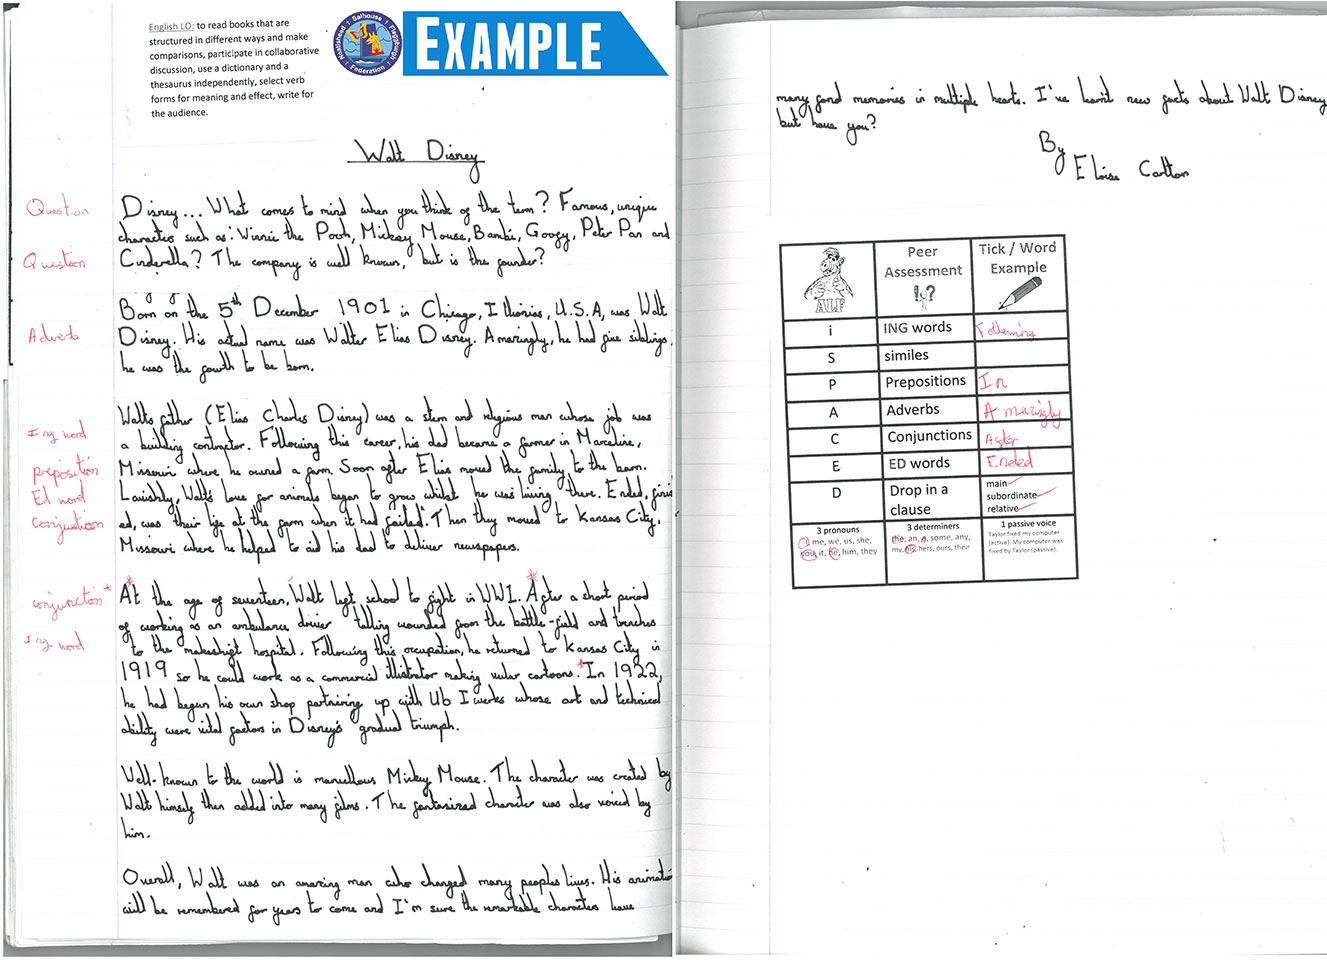 English LO: to read books that are
structured in different ways and make
comparisons, participate in collaborative
discussion, use a dictionary and a
thesaurus independently, select verb
forms for meaning and effect, write for
the audience.
Neatishead Salhouse Fleggburgh
Federation
EXAMPLE
Walt Disney
Question
Disney... What comes to mind when you think of the term? Famous, unique
characters such as: Winnie the Pooh, Mickey Mouse, Bambi, Goofy, Peter Pan and
Question
Cinderella? The company is well known, but is the founder?
Born on the 5th December 1901 in Chicago, Illionios, U.S.A, was Walt
Adverb
Disney. His actual name was Walter Elias Disney. Amazingly, he had five siblings,
he was the fourth to be born.
Walts father (Elias Charles Disney) was a stern and religious man whose job was
Ing word
a building contractor. Following this career, his dad became a farmer in Marceline,
preposition
Missouri where he owned a farm. Soon after Elias moved the family to the barn.
Ed word
Lavishly, Walt's love for animals began to grow whilst he was living there. Ended, finis
conjuction
ed, was their life at the farm when it had failed. Then they moved to Kansas City,
Missouri where he helped to aid his dad to deliver newspapers.
conjunction *
At the age of seventeen, Walt left school to fight in WW1. After a short period
of working as an ambulance driver talling wounded from the battle-field and trenches
Ing word
to the makeshift hospital. Following this occupation, he returned to Kansas City in
1919 so he could work as a commercial illustrator making cartoons. In 1922,
he had begun his own shop partnering up with Ub Iwerks whose art and technical
ability were vital factors in Disney's gradual triumph.
Well-known to the world is marvellous Mickey Mouse. The character was created by
Walt himself then added into many films. The fantasized character was also voiced by
him.
Overall, Walt was an amazing man who changed many peoples lives. His animatio
will be remembered for years to come and I'm sure the remarkable characters leave
many fond memories in multiple hearts. I've learnt new facts about Walt Disney
but have you?
By
Eloise Carlton
ALF
Peer Assessment !?
Tick / Word Example
i ING words Following
S similes
P Prepositions In
A Adverbs Amazingly
C Conjunctions After
E ED words Ended
D Drop in a clause main subordinate relative
3 pronouns
I, me, we, us, she,
you, it, he, him, they
3 determiners
the, an, a, some, any,
my, his, hers, ours, their
1 passive voice
Taylor fixed my computer
(active). My computer was
fixed by Taylor (passive).